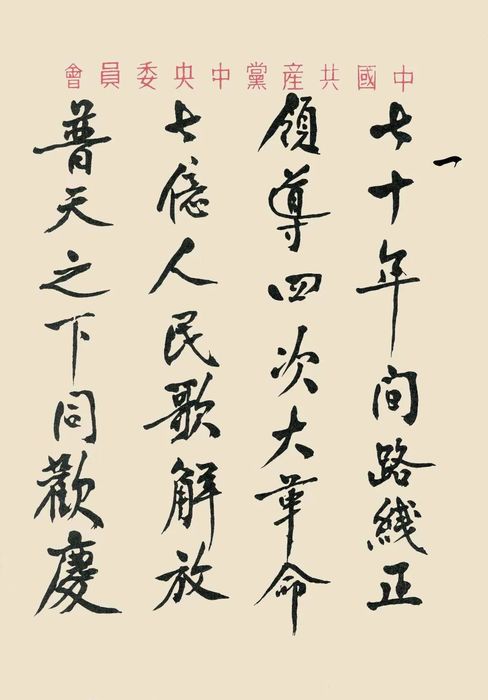 中國共産黨中央委員會
一
七十年间路綫正
領導四次大革命
七億人民歌解放
普天之下同歡慶